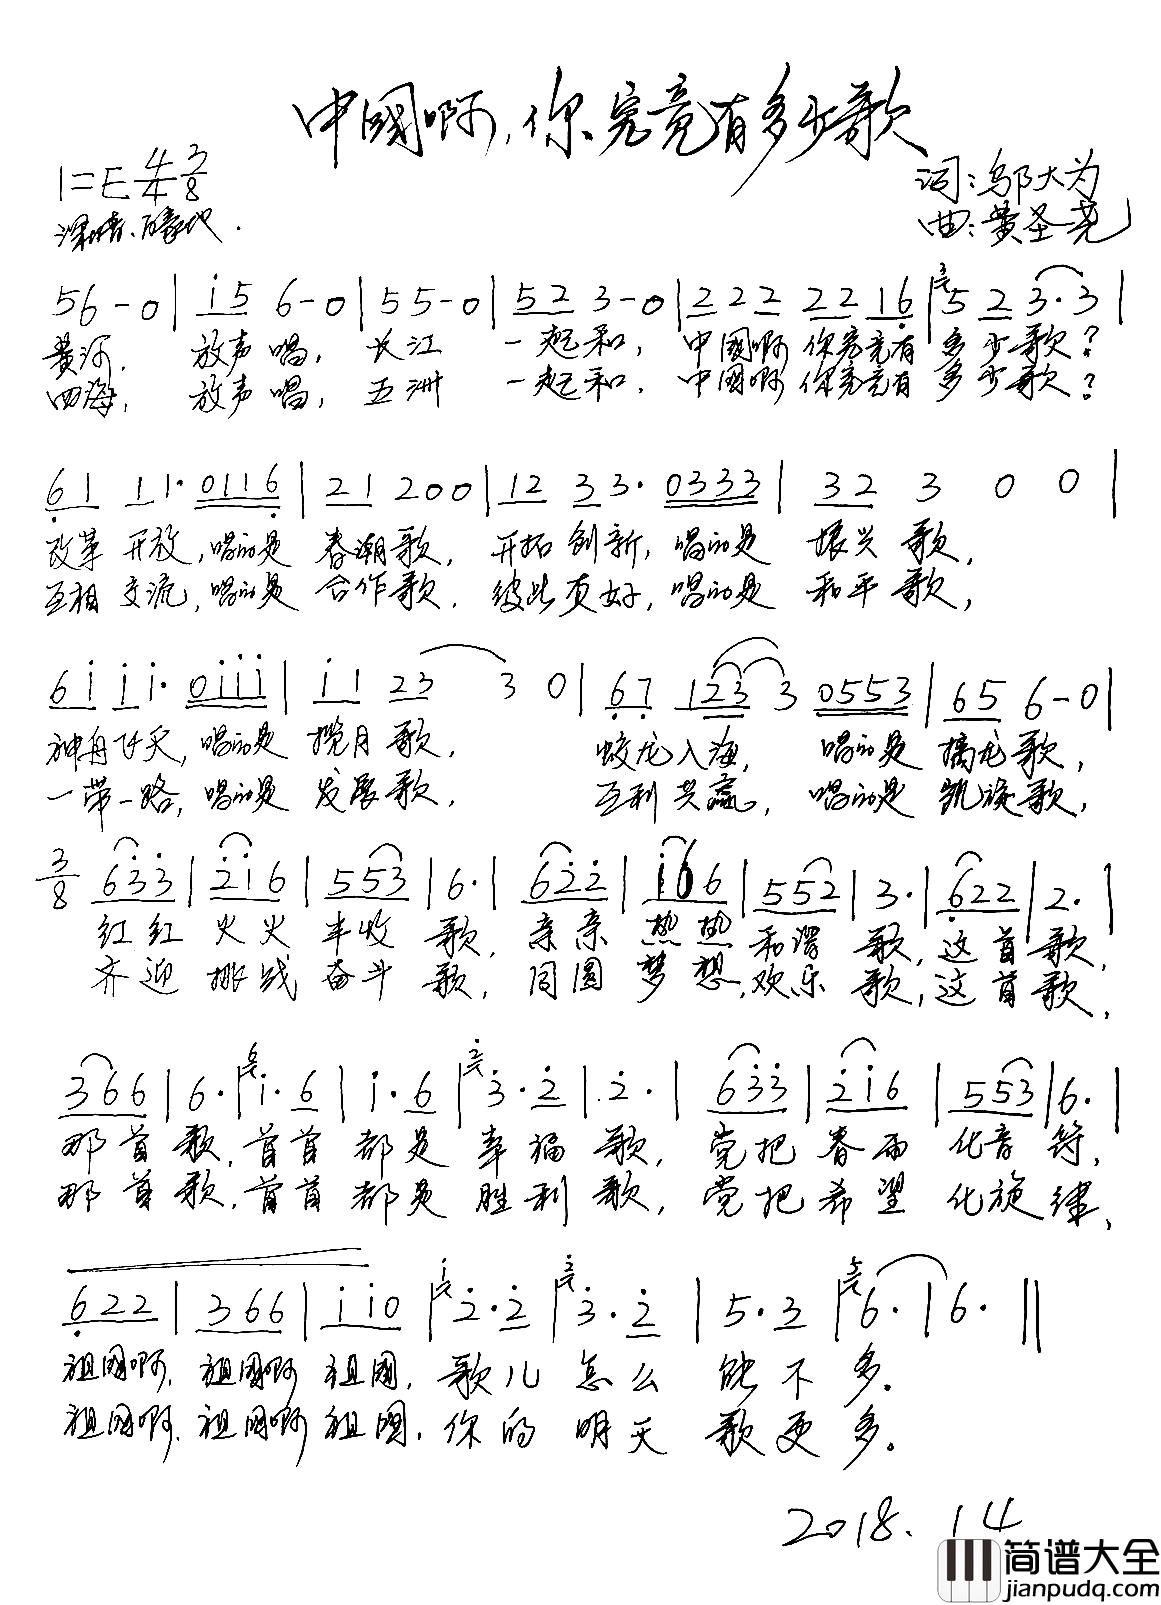 中國啊，你究竟有多少歌
1=E 4/4 3/8
词：邬大为
深情、自豪地.
曲：黄圣尧
56-0| i5 6-0|55-0|52 3-0|222 2216|52 3·3|
黄河, 放声唱, 长江 一起和, 中國啊 你究竟有 多少歌?
四海, 放声唱, 五洲 一起和, 中國啊 你究竟有 多少歌?
61 11· 0116|21 200|12 33· 0333|32 3 0 0|
改革 开放,唱的是 春潮歌, 开拓创新,唱的是 振兴歌,
互相交流,唱的是 合作歌, 彼此友好,唱的是 和平歌,
6i ii· 0iii|ii 23 3 0|67 123 3 0553|65 6-0|
神舟飞天,唱的是 揽月歌, 蛟龙入海, 唱的是 擒龙歌,
一带一路,唱的是 发展歌, 互利共赢, 唱的是 凯旋歌,
3/8 633|2i6|553|6·|622|i66|552|3·|622|2·|
红红火火丰收歌,亲亲热热和谐歌,这首歌,
齐迎挑战奋斗歌,同圆梦想,欢乐歌,这首歌,
366|6·|i·6|i·6|3·2|2·|633|2i6|553|6·|
那首歌,首首都是幸福歌, 党把春雨化音符,
那首歌,首首都是胜利歌, 党把希望化旋律,
622|366|ii0|2·2|3·2|5·3|6·|6·‖
祖國啊, 祖國啊 祖國, 歌儿怎么能不多.
祖國啊, 祖國啊 祖國, 你的明天歌更多.
2018.14
简谱大全
jianpudq.com